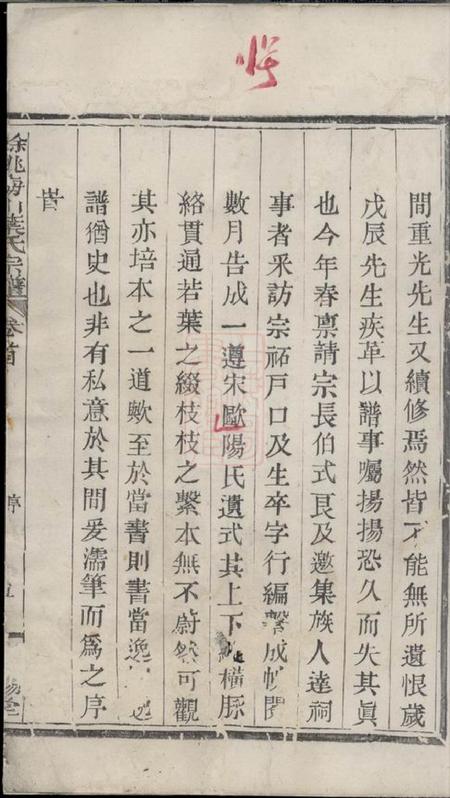 間重光先生又續修焉然皆不能無所遺恨歲
戊辰先生疾革以譜事囑揚揚恐久而失其眞
也今年春禀請宗長伯式良及邀集族人達祠
事者采訪宗祏戸口及生卒字行編成帙閱
數月告成一遵宋歐陽氏遺式其上下縱橫脈
絡貫通若葉之綴枝枝之繫本無不蔚然可觀
其亦培本之一道歟至於當書則書當逸
譜猶史也非有私意於其間爰濡筆而爲之序
旹
餘姚 葉氏宗譜
卷首
序